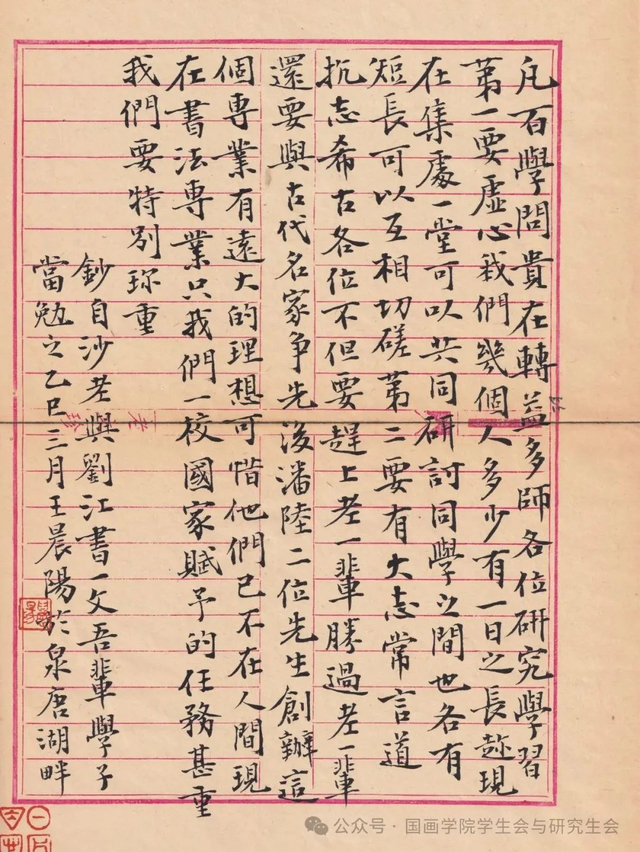 凡百學問貴在轉益多師各位研究學習
第一要虛心我們幾個人多少有一日之長趁現
在集處一堂可以共同研討同學之間世各有
短長可以互相切磋第二要有大志常言道
抗志希古各位不但要趕上老一輩勝過老一輩
還要與古代名家爭先後潘陸二位先生創辦這
個專業有遠大的理想可惜他們已不在人間現
在書法專業只我們一校國家賦予的任務甚重
我們要特別珎重
鈔自沙老與劉江書一文吾輩學子
當勉之乙巳三月王晨陽於泉唐湖畔
公众号·国画学院学生会与研究生会